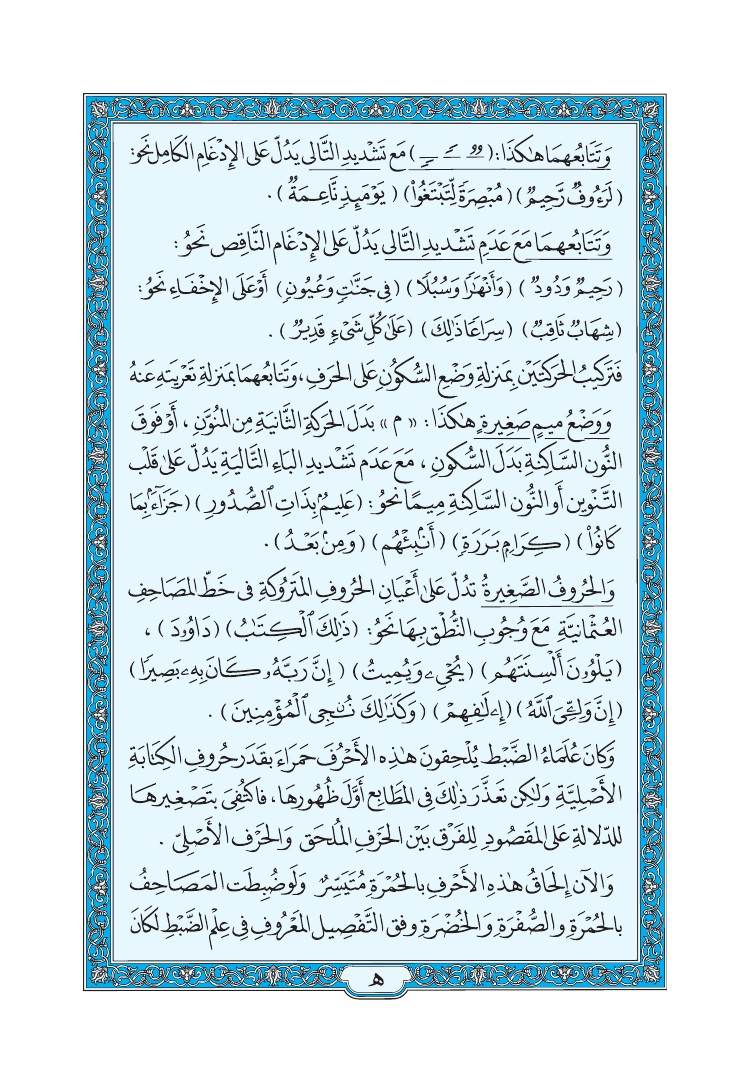 وَتَتَابُعهِمَا هٰكَذَا: ( ـٌـ ـًـ ـٍـ ) مَع تَشْدِيدِ التَّالِى يَدُلّ عَلَى الإِدْغَامِ الكَامِلِ نَحوُ:
(لَرَءُوفٞ رَّحِيمٞ) (مُبۡصِرَةٗ لِّتَبۡتَغُواْ) (يَوۡمَئِذٖ نَّاعِمَةٞ) .
وَتَتَابُعهِمَا مَعَ عَدَمِ تَشْدِيدِ التَّالِى يَدُلّ عَلى الإِدْغَامِ النَّاقِصِ نَحوُ:
(رَحِيمٞ وَدُودٞ) (وَأَنۡهَٰرٗا وَسُبُلٗا) (فِي جَنَّٰتٖ وَعُيُونٖ) أَوْ عَلَى الإِخْفَاءِ نَحوُ:
(شِهَابٞ ثَاقِبٞ) (سِرَاعٗا ذَٰلِكَ) (عَلَىٰ كُلِّ شَيۡءٖ قَدِيرٞ) .
فَتَركِيبُ الحَركَتَيْن بِمَنزِلةِ وَضْعِ السُّكُونِ عَلى الحَرفِ، وَتَتَابُعهمَا بمَنزلةِ تَعْرِيَتِهِ عَنهُ
وَوَضْعُ مِيمٍ صَغِيرةٍ هٰكَذَا: « م » بَدَلَ الحَركَةِ الثَّانيَةِ مِن المُنَوَّنِ ، أَوْ فَوقَ
النُّونِ السَّاكِنةِ بَدَلَ السُّكُونِ ، مَعَ عَدَم تَشْدِيدِ البَاءِ التَّاليَةِ يَدُلّ عَلى قَلْب
التَّنْوِينِ أَوِ النُّون السَّاكِنَةِ مِيمًا نحوُ: (عَلِيمُۢ بِذَاتِ ٱلصُّدُورِ) (جَزَآءَۢ بِمَا
كَانُواْ) (كِرَامِۭ بَرَرَةٖ) (أَنۢبِئۡهُم) (وَمِنۢ بَعۡدُ) .
وَالحُرُوفُ الصَّغِيرةُ تدُلّ عَلى أَعْيَانِ الحُرُوفِ المَتْرُوكةِ فى خَطّ المصَاحِفِ
العُثْمانيَّةِ مَعَ وُجُوبِ النُّطْقِ بِهَا نَحوُ: (ذَٰلِكَ ٱلۡكِتَٰبُ) (دَاوُۥدَ) ،
(يَلۡوُۥنَ أَلۡسِنَتَهُم) (يُحۡيِۦ وَيُمِيتُ) (إِنَّ رَبَّهُۥ كَانَ بِهِۦ بَصِيرٗا)
(إِنَّ وَلِـِّۧيَ ٱللَّهُ) (إِۦلَٰفِهِمۡ) (وَكَذَٰلِكَ نُـۨجِي ٱلۡمُؤۡمِنِينَ) .
وَكانَ عُلَمَاءُ الضَّبْطِ يُلْحِقونَ هٰذِهِ الأَحْرُفَ حَمرَاءَ بقَدَرِ حُرُوفِ الكِتَابَةِ
الأَصْلِيَّةِ وَلٰكِن تَعَذَّرَ ذٰلِكَ فِى المَطَابِعِ أَوَّلَ ظُهُورِهَا، فَاكْتُفِىَ بتَصْغِيرهَا
للدّلَالةِ عَلى المقَصُودِ لِلفَرْقِ بَيْن الحَرْفِ المُلْحَقِ وَالحَرْف الأَصْلِىّ .
وَالآن إِلحَاقُ هٰذِهِ الأَحْرفِ بالحُمْرَةِ مُتَيَسِّرٌ وَلَو ضُبِطَت المَصَاحِفُ
بالحُمْرَةِ والصُّفْرَةِ وَالخُضْرَةِ وفق التَّفْصِيل المَعْرُوفِ فِى عِلْم الضَّبْطِ لَكانَ
هـ